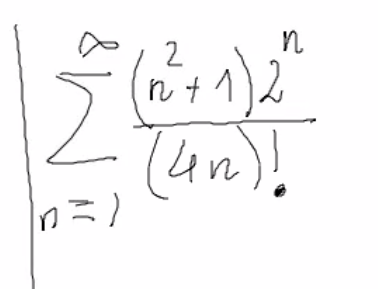 \sum_{n=1}^{\infty} \frac{(n^2+1)2^n}{(4n)!}